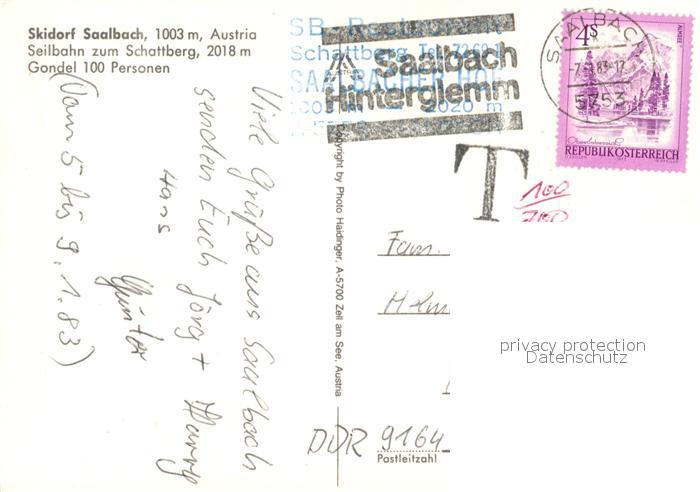 Skidorf Saalbach, 1003 m, Austria
Seilbahn zum Schattberg, 2018 m
Gondel 100 Personen
SB-Restaurant
Schattberg Tel.
SAALBACHER HOF
2020 m
Saalbach
Hinterglemm
SAALBACH
5753
4S
REPUBLIK ÖSTERREICH
T
100
Viele Grüße aus Saalbach
senden Euch Jörg +
Hans
Günter
(Vom 5 bis 9.1.83)
Copyright by Photo Haidinger, A-5700 Zell am See, Austria
Fam.
Helm
privacy protection
Datenschutz
DDR 9164
Postleitzahl